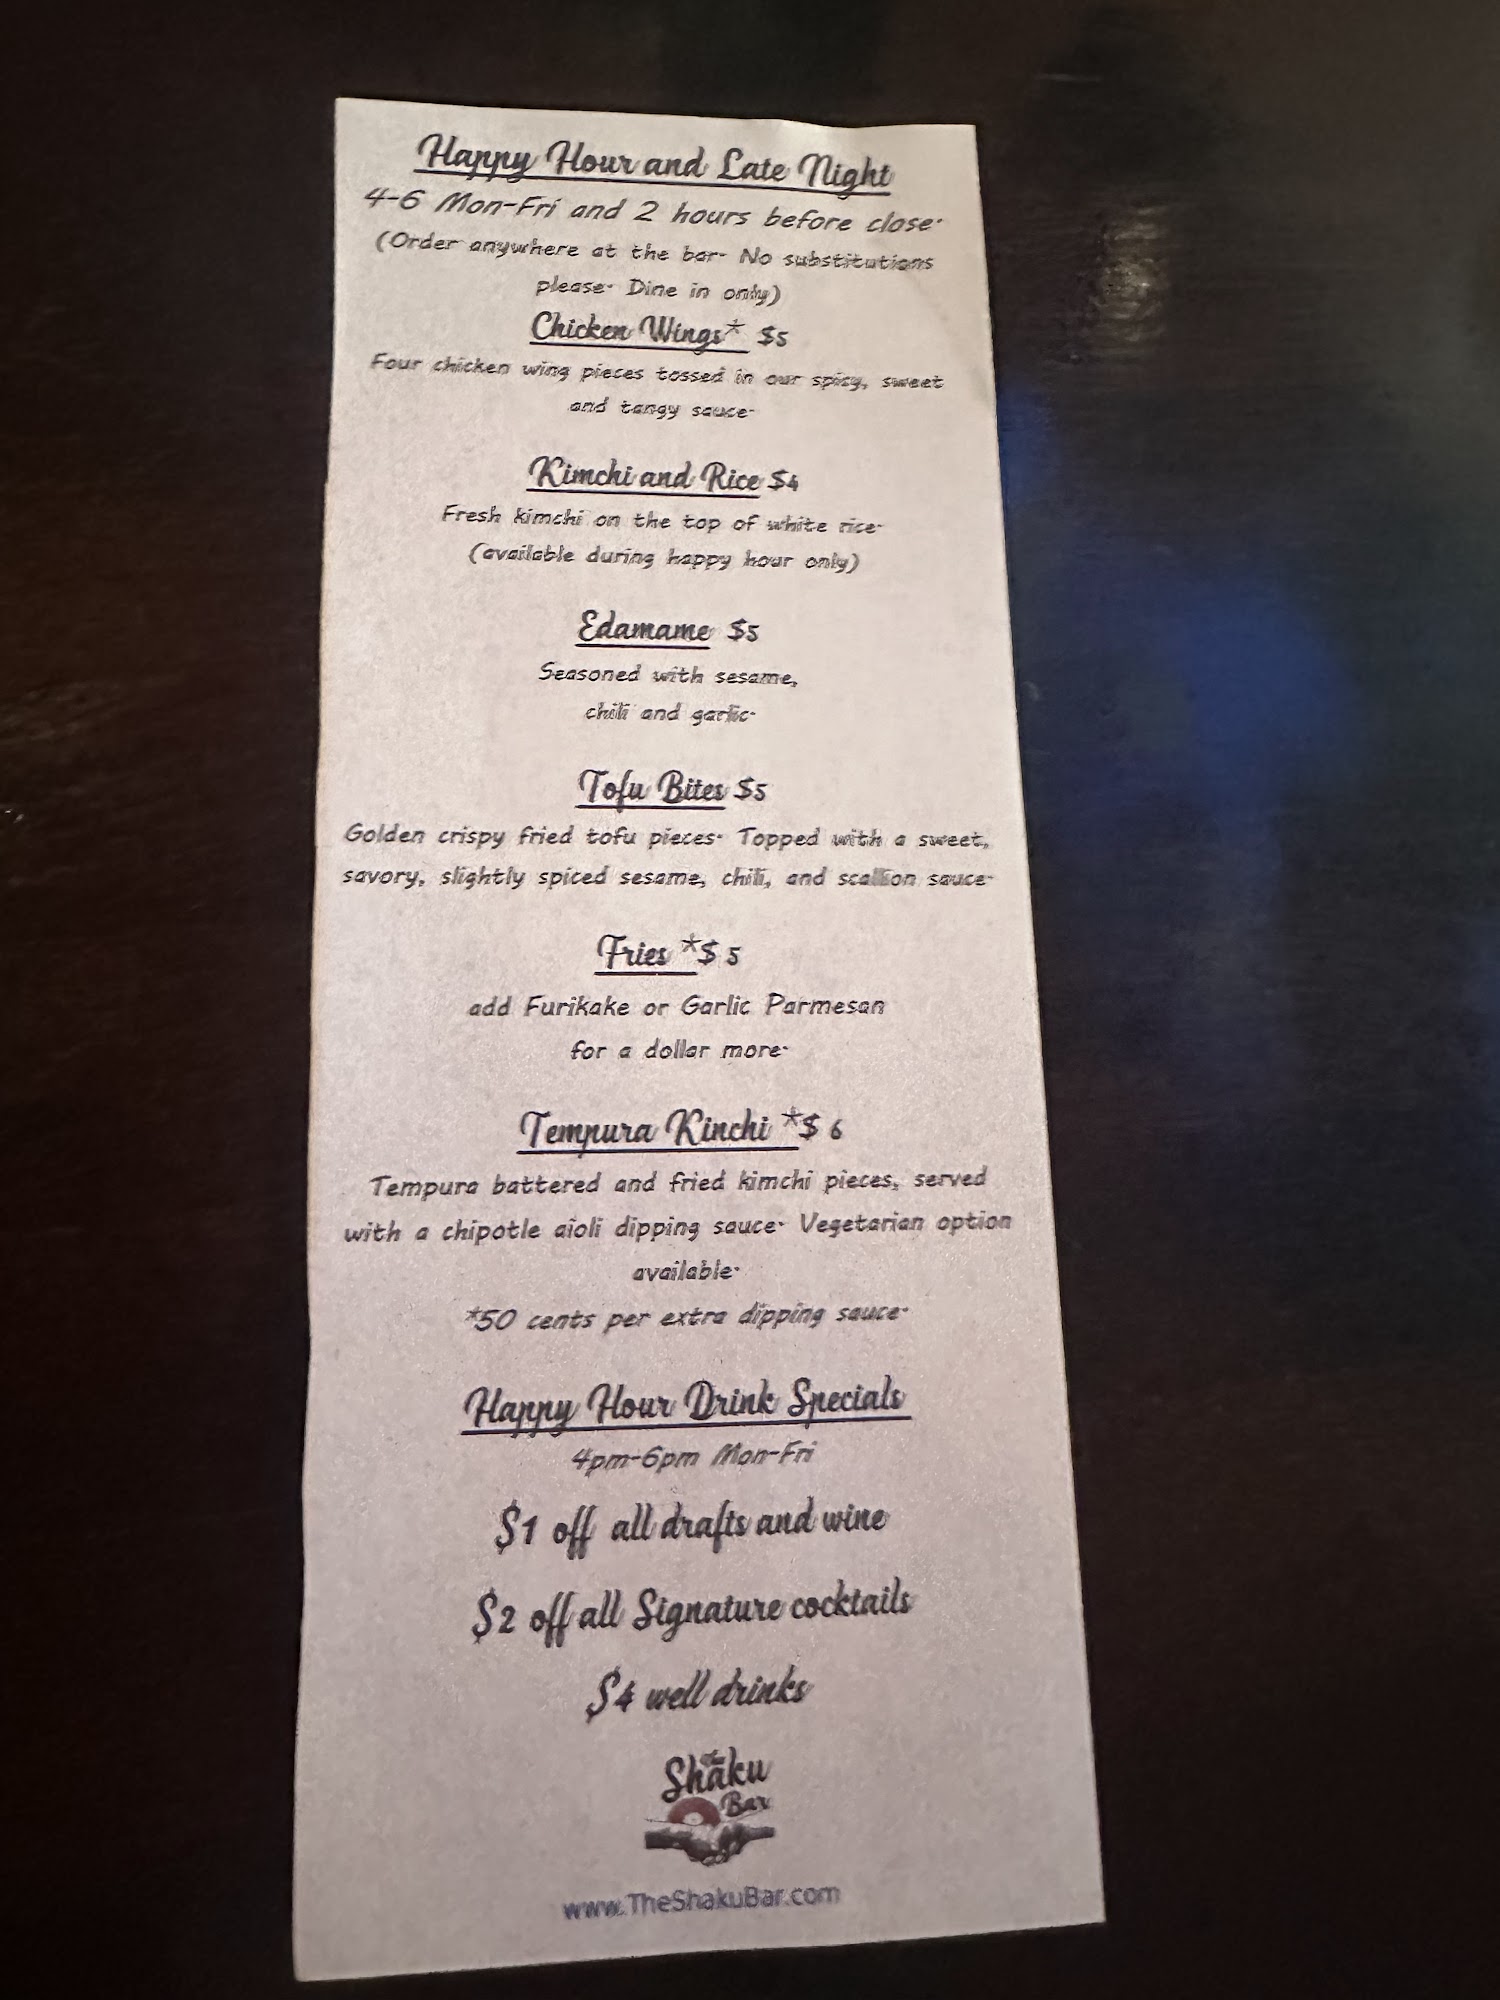 Happy Hour and Late Night
4-6 Mon-Fri and 2 hours before close.
(Order anywhere at the bar. No substitutions
please. Dine in only)
Chicken Wings* $5
Four chicken wing pieces tossed in our spicy, sweet
and tangy sauce.
Kimchi and Rice $4
Fresh kimchi on the top of white rice.
(available during happy hour only)
Edamame $5
Seasoned with sesame,
chili and garlic.
Tofu Bites $5
Golden crispy fried tofu pieces. Topped with a sweet,
savory, slightly spiced sesame, chili, and scallion sauce.
Fries *$ 5
add Furikake or Garlic Parmesan
for a dollar more.
Tempura Kinchi *$ 6
Tempura battered and fried kimchi pieces, served
with a chipotle aioli dipping sauce. Vegetarian option
available.
*50 cents per extra dipping sauce.
Happy Hour Drink Specials
4pm-6pm Mon-Fri
$1 off all drafts and wine
$2 off all Signature cocktails
$4 well drinks
The
Shaku
Bar
www.TheShakuBar.com